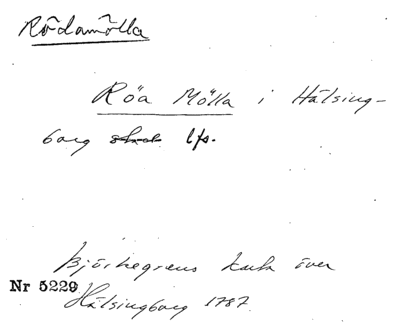 Rödamölla
Röa Mölla i Hälsing-
borg lfs.
Björkegrens karta över
Nr 5229
Hälsingborg 1787